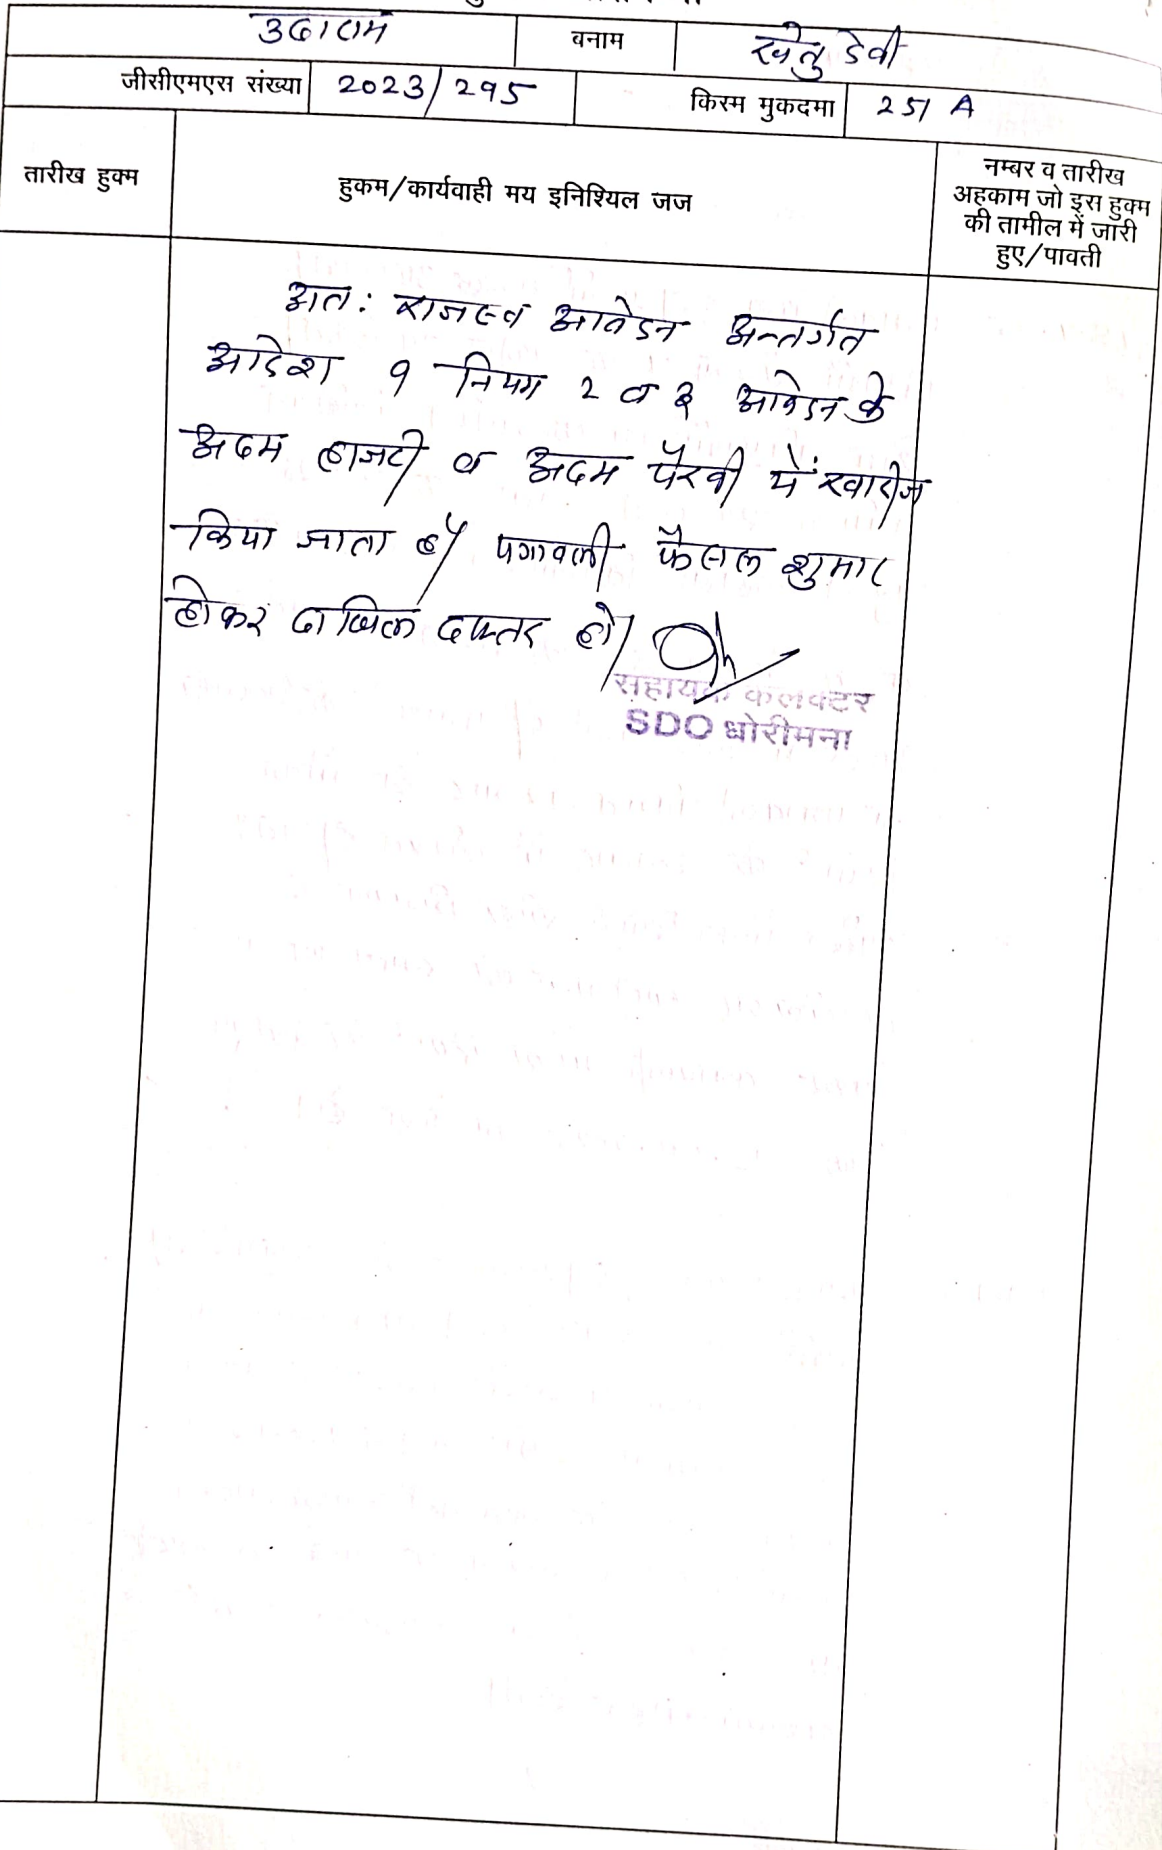 उदाराम बनाम खेतु देवी
जीसीएमएस संख्या 2023/295 किस्म मुकदमा 251 A
तारीख हुक्म
हुकम/कार्यवाही मय इनिश्यिल जज
नम्बर व तारीख
अहकाम जो इस हुक्म
की तामील में जारी
हुए/पावती
अत: राजस्व आवेदन अन्तर्गत
आदेश 9 नियम 2 व 3 आवेदन के
अदम हाजरी व अदम पैरवी में खारीज
किया जाता है/ पत्रावली फैसल शुमार
होकर दाखिल दफ्तर हो/
सहायक कलक्टर
SDO धोरीमना